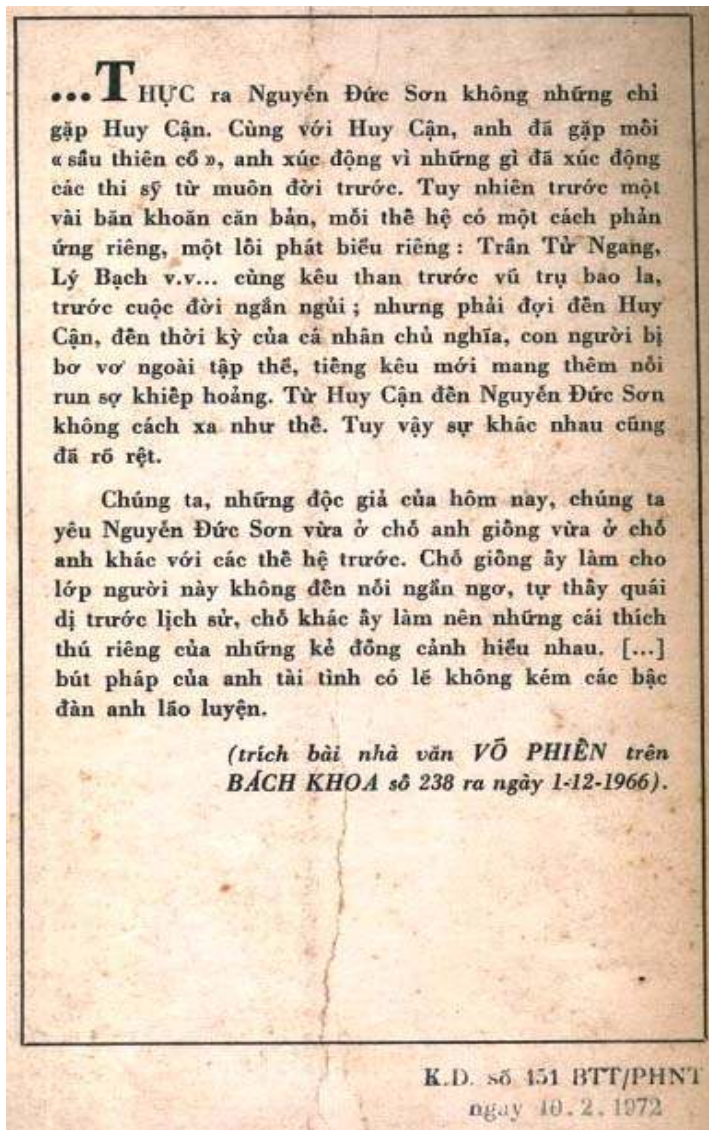 ...THỰC ra Nguyễn Đức Sơn không những chỉ
gặp Huy Cận. Cùng với Huy Cận, anh đã gặp mối
« sầu thiên cổ », anh xúc động vì những gì đã xúc động
các thi sỹ từ muôn đời trước. Tuy nhiên trước một
vài băn khoăn căn bản, mỗi thế hệ có một cách phản
ứng riêng, một lối phát biểu riêng : Trần Tử Ngang,
Lý Bạch v.v... cùng kêu than trước vũ trụ bao la,
trước cuộc đời ngắn ngủi ; nhưng phải đợi đến Huy
Cận, đến thời kỳ của cá nhân chủ nghĩa, con người bị
bơ vơ ngoài tập thể, tiếng kêu mới mang thêm nỗi
run sợ khiếp hoảng. Từ Huy Cận đến Nguyễn Đức Sơn
không cách xa như thế. Tuy vậy sự khác nhau cũng
đã rõ rệt.
Chúng ta, những độc giả của hôm nay, chúng ta
yêu Nguyễn Đức Sơn vừa ở chỗ anh giống vừa ở chỗ
anh khác với các thế hệ trước. Chỗ giống ấy làm cho
lớp người này không đến nỗi ngẩn ngơ, tự thấy quái
dị trước lịch sử, chỗ khác ấy làm nên những cái thích
thú riêng của những kẻ đồng cảnh hiểu nhau. [...]
bút pháp của anh tài tình có lẽ không kém các bậc
đàn anh lão luyện.
(trích bài nhà văn VÕ PHIẾN trên
BÁCH KHOA số 238 ra ngày 1-12-1966).
K.D. số 151 BTT/PHNT
ngay 10.2.1972